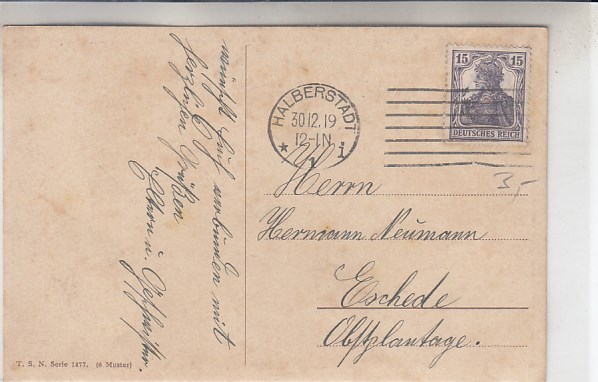 wünscht Euch verbunden mit
herzlichen Grüßen
Eltern u. Geschwister.
T. S. N. Serie 1477. (6 Muster)
HALBERSTADT
30.12.19
12-1N
15 15
DEUTSCHES REICH
3,-
Herrn
Hermann Neumann
Eschede
Obstplantage.